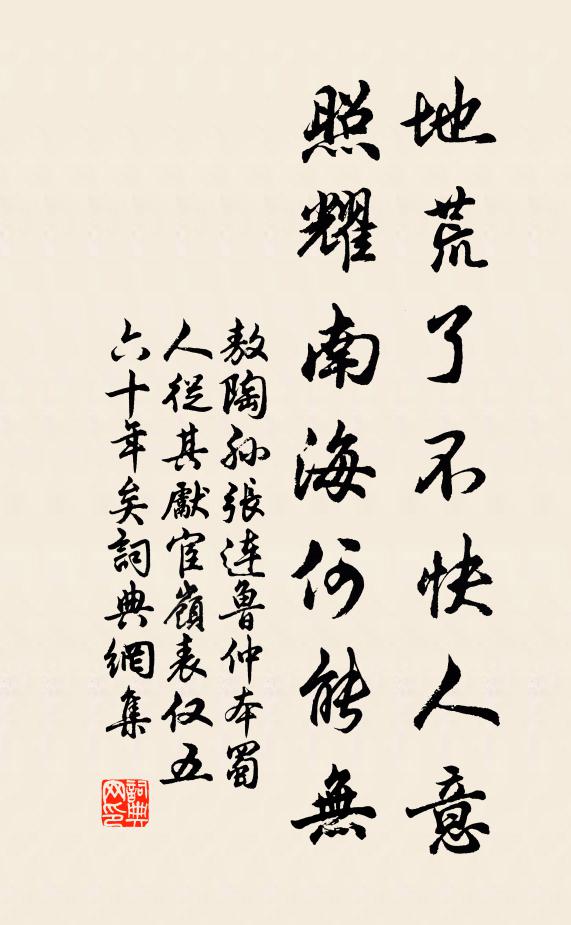 地荒了不快人意
照耀南海何能無
敖陶孙張連魯仲本蜀
人從其獻宦嶺表仅五
六十年矣詞典網集
詞典网印